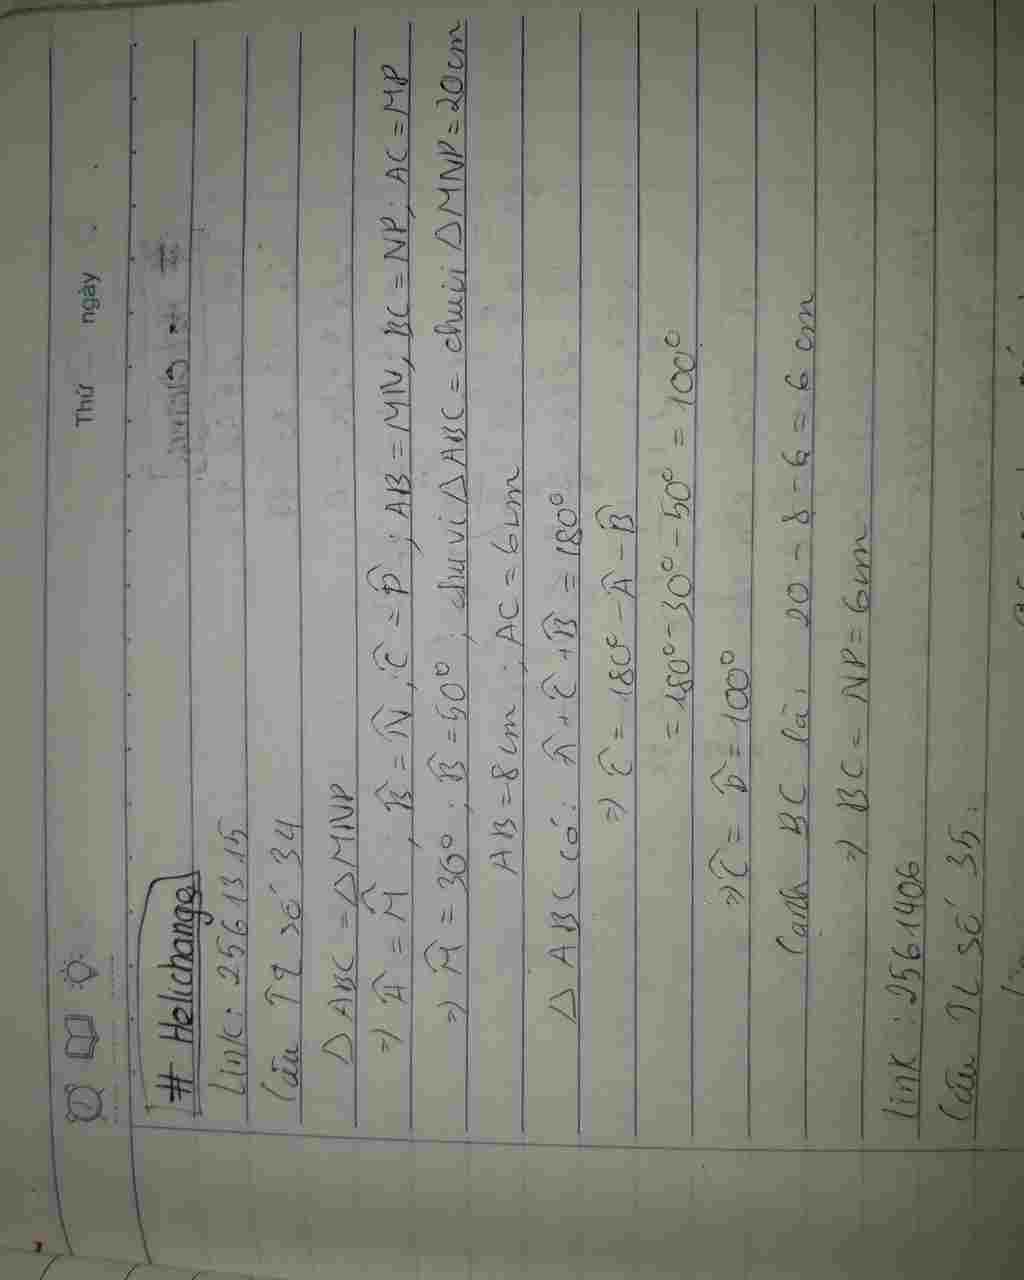 Thứ ngày
# Helichange
Link: 2561315
Câu TL số 34
△ ABC = △ MNP
=) Â = M̂ ; B̂ = N̂, Ĉ = P̂ ; AB = MN; BC = NP; AC = MP
=) M̂ = 30°; B̂ = 50°; chu vi △ ABC = chu vi △ MNP = 20cm
AB = 8cm; AC = 6cm
△ ABC có: Â + Ĉ + B̂ = 180°
=) Ĉ = 180° - Â - B̂
= 180° - 30° - 50° = 100°
=) Ĉ = P̂ = 100°
Cạnh BC là: 20 - 8 - 6 = 6 cm
=) BC = NP = 6cm
Link: 2561406
Câu TL số 35: